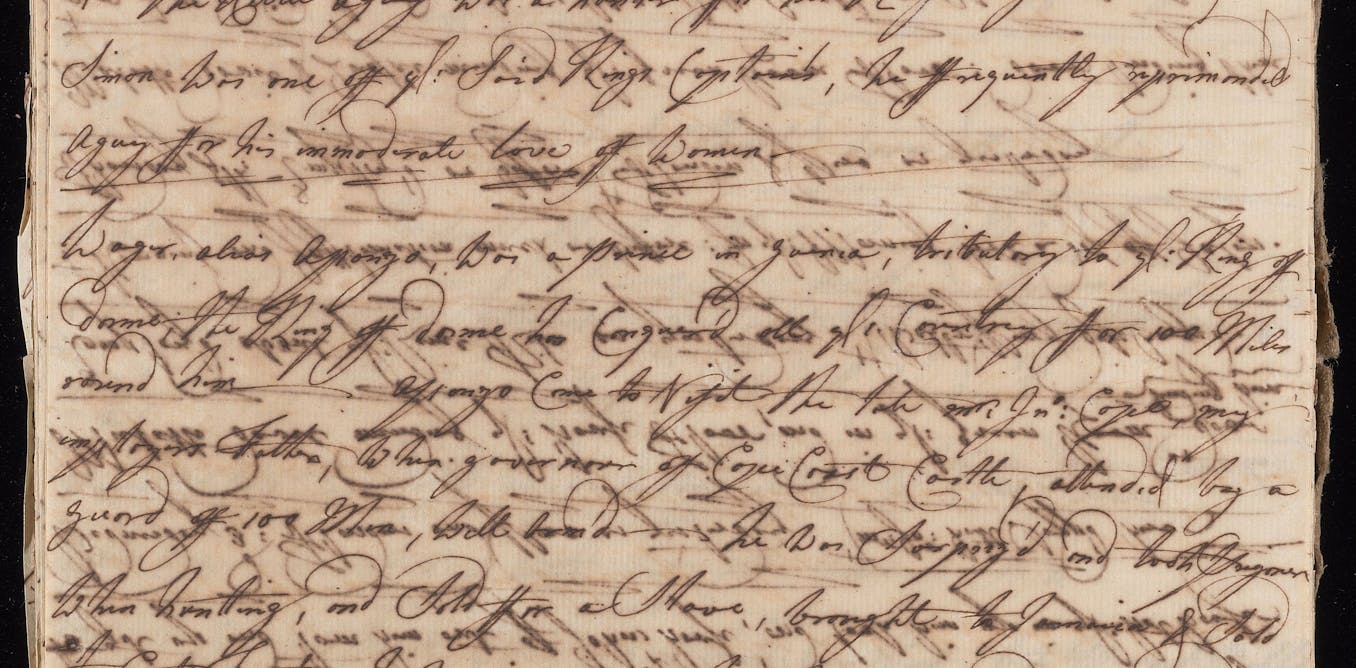 Simon was one off ye: Said Kings Captains, he ffrequently reprimanded
Aguy ffor his immoderate love off Women
Wager, alias Apongo, was a prince in guinea, tributary to ye: King off
dome. The King off dome has Conquer'd all ye: Country ffor 100 Miles
round him Apongo Come to Visit the late mr. Jno: Cope, my
employers Father, when governour off Cape Coast Castle, attended by a
guard off 100 Men, well arm'd he was Surpriz'd and took Prisoner
when hunting, and Sold ffor a Slave, brought to Jamaica & Sold